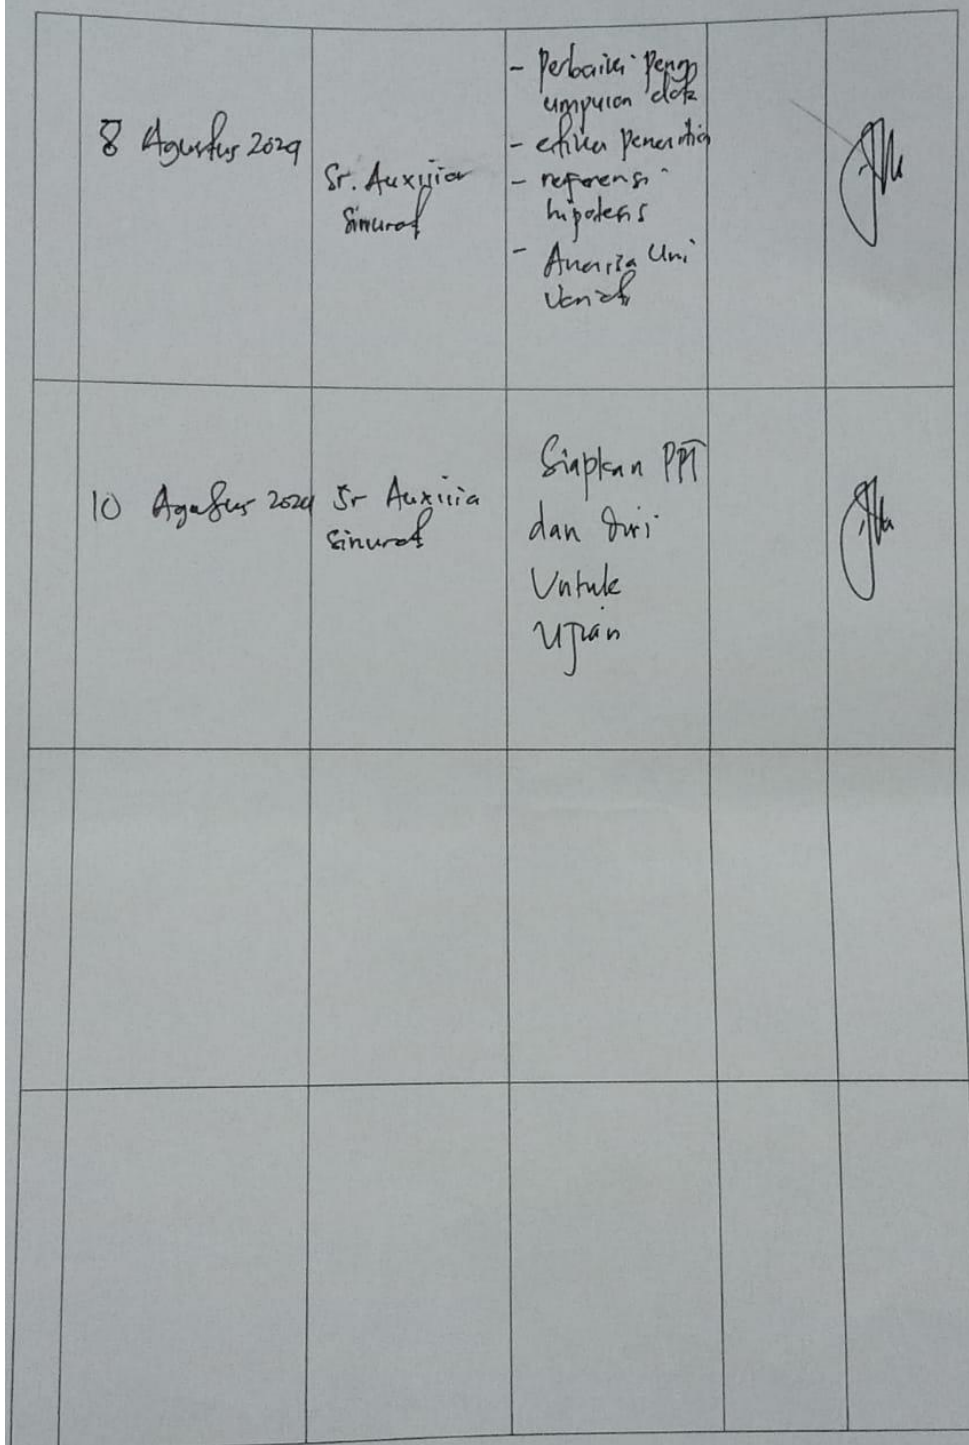 8 Agustus 2024
Sr. Auxilia
Sinurat
- Perbaiki Peng
umpulan data
- etika penelitian
- referensi
hipotesis
- Analisa Uni
Variat
10 Agustus 2024
Sr Auxilia
Sinurat
Siapkan PPT
dan diri
Untuk
Ujian